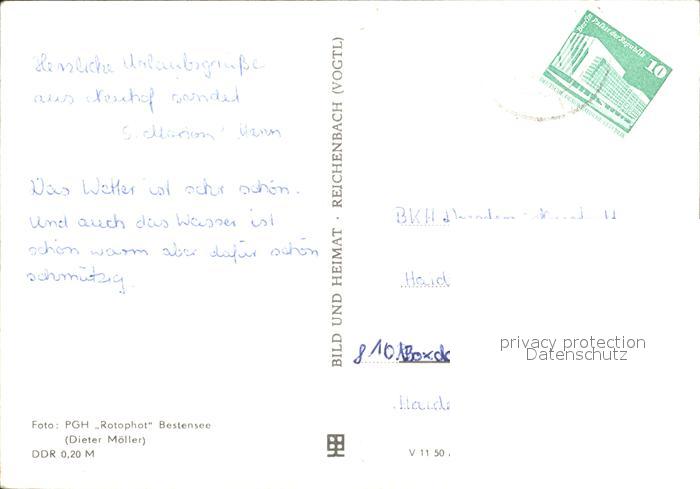 Herzliche Urlaubsgrüße
aus Neuhof sendet
Das Wetter ist sehr schön.
Und auch das Wasser ist
schön warm aber dafür schön
schmützig.
Foto: PGH „Rotophot" Bestensee
(Dieter Möller)
DDR 0,20 M
BILD UND HEIMAT · REICHENBACH (VOGTL)
Berlin Palast der Republik
10
DEUTSCHE DEMOKRATISCHE REPUBLIK
BKH
Haid
8101 Boxdo
Haide
V 11 50
privacy protection
Datenschutz